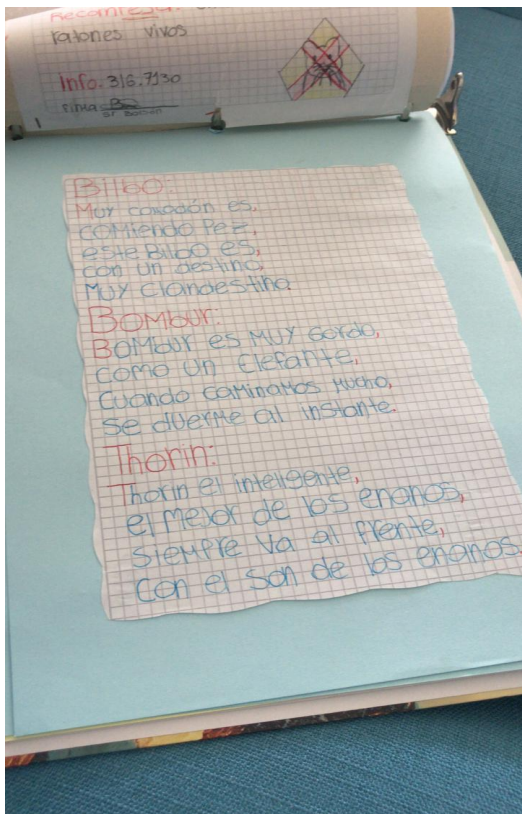 Recompensa:
ratones vivos
Info. 316.7130
Firma
Bilbo:
Muy comodón es,
comiendo Pez,
este Bilbo es,
con un destino,
Muy clandestino
Bombur:
Bombur es Muy gordo,
como un Elefante,
Cuando caminamos Mucho,
se duerme al instante.
Thorin:
Thorin el inteligente,
el Mejor de los enanos,
siempre va al frente,
con el son de los enanos.